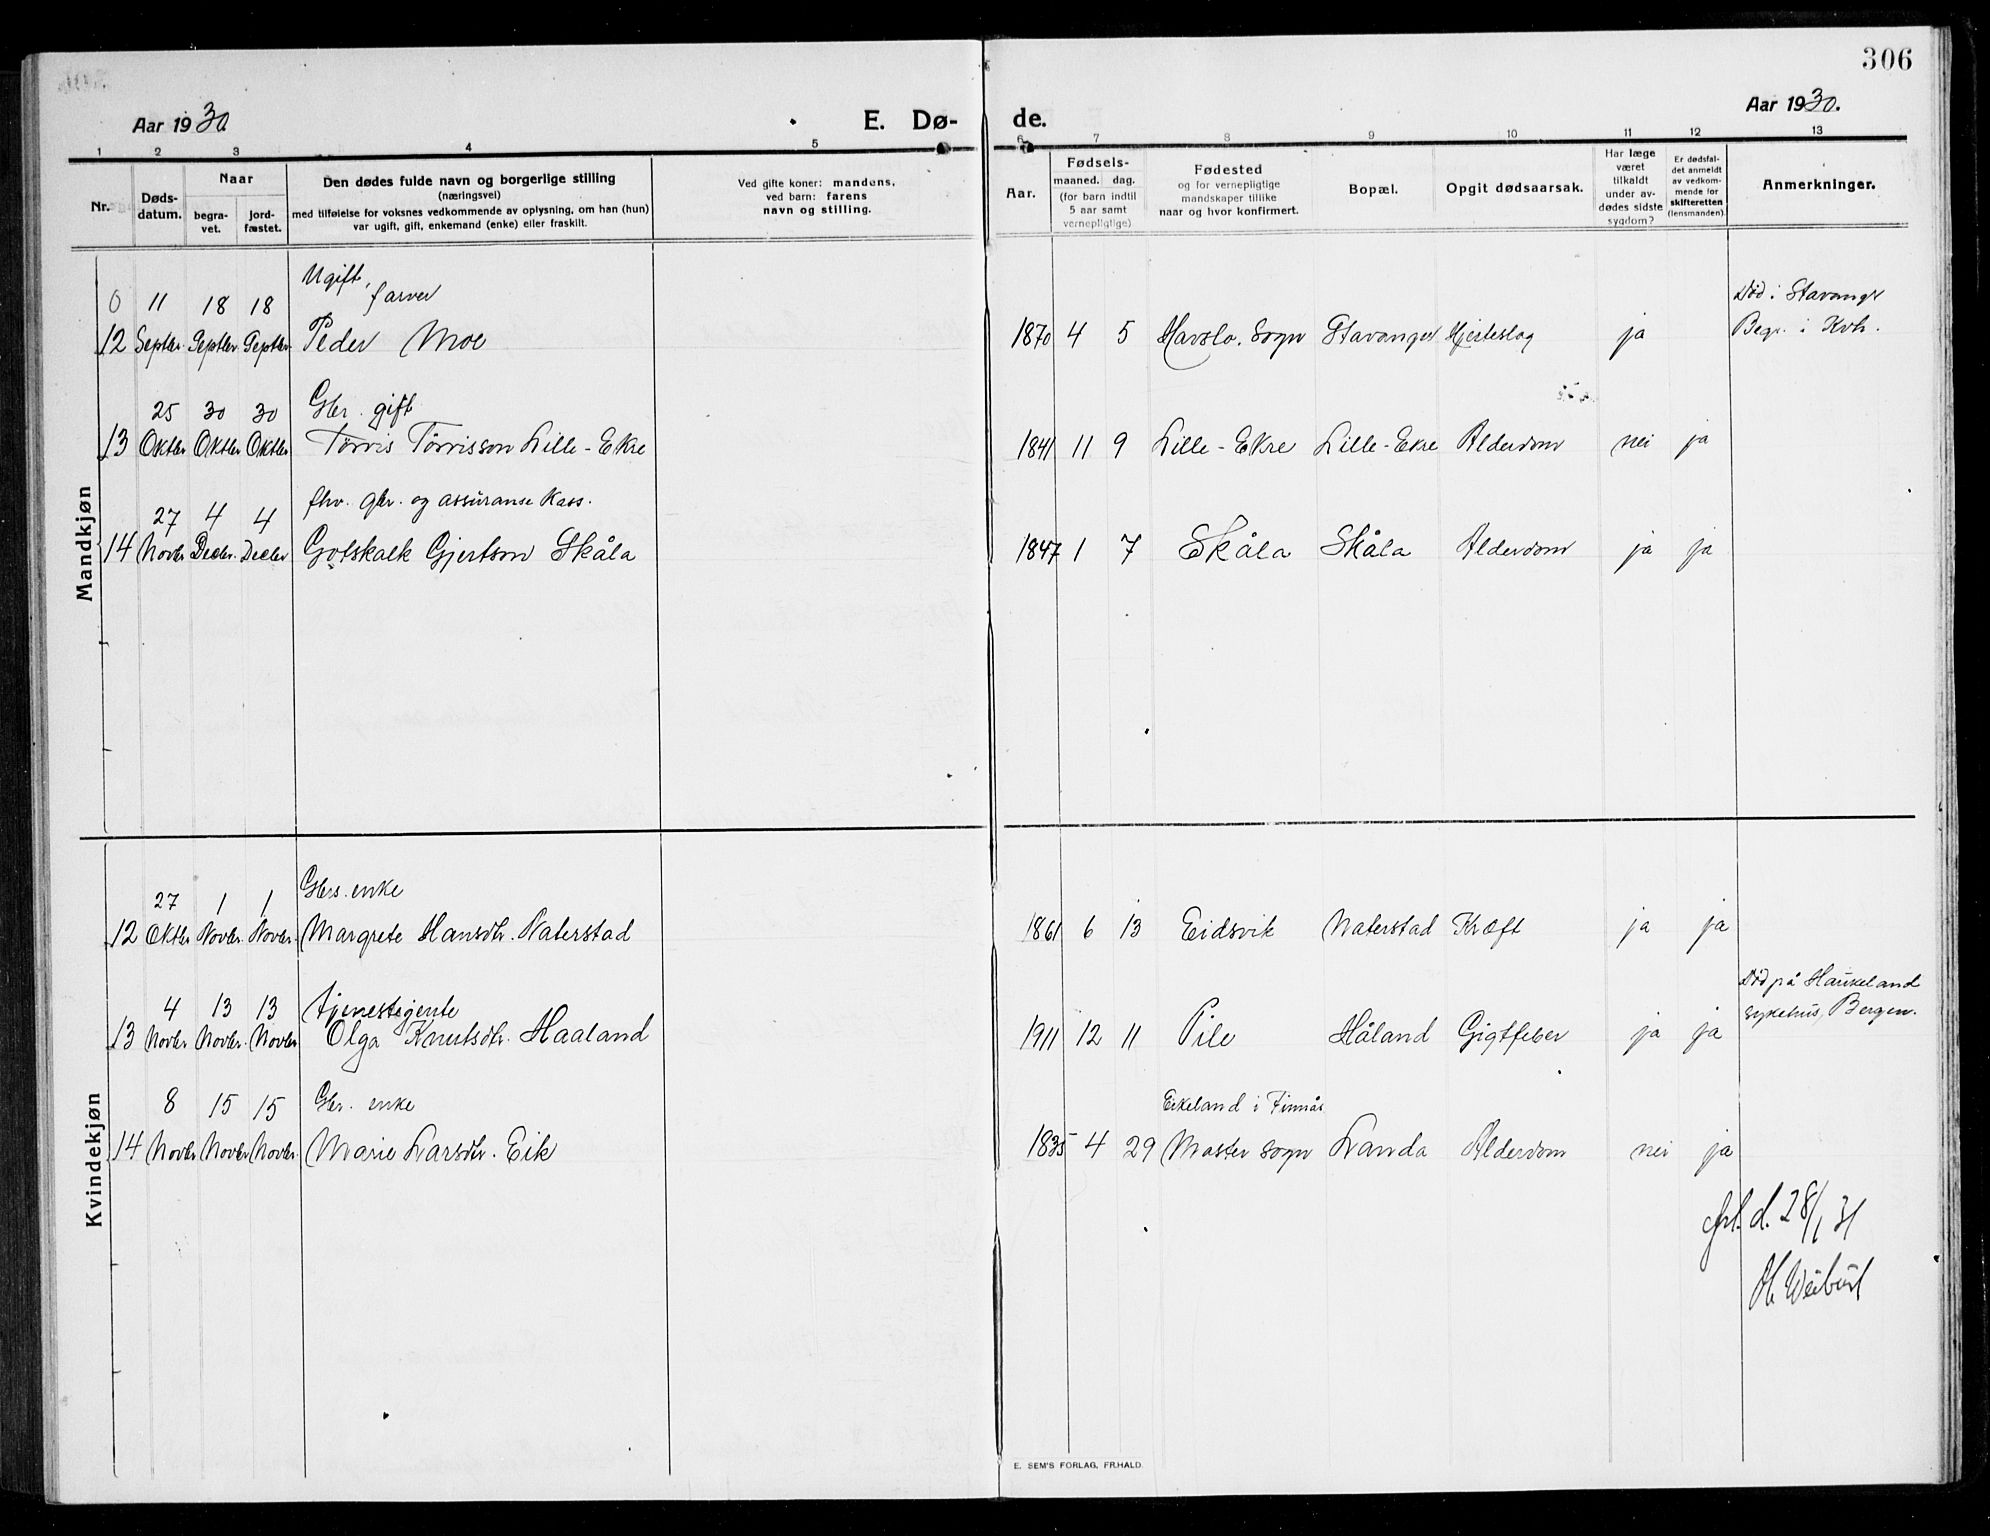 306
Aar 1930.
E. Dø-
de.
Aar 1930.
1 2 3 4 5 6 7 8 9 10 11 12 13
Nr.
Døds-
datum.
Naar
begra-
vet.
jord-
fæstet.
Den dødes fulde navn og borgerlige stilling
(næringsvei)
med tilføielse for voksnes vedkommende av oplysning, om han (hun)
var ugift, gift, enkemand (enke) eller fraskilt.
Ved gifte koner: mandens,
ved barn: farens
navn og stilling.
Aar.
Fødsels-
maaned. dag.
(for barn indtil
5 aar samt
vernepligtige)
Fødested
og for vernepligtige
mandskaper tillike
naar og hvor konfirmert.
Bopæl.
Opgit dødsaarsak.
Har læge
været
tilkaldt
under av-
dødes sidste
sygdom?
Er dødsfal-
det anmeldt
av vedkom-
mende for
skifteretten
(lensmanden).
Anmerkninger.
Mandkjøn
Ugift, farver
0 11 18 18
12 Septbr. Septbr. Septbr. Peder Moe 1870 4 5 Havslo. Sogn Stavanger Hjerteslag ja
Død i Stavanger
Begr. i Kvh.
25 30 30 Gbr. gift
13 Oktbr Oktbr Oktbr Tørris Tørrisson Lille-Ekre 1841 11 9 Lille-Ekre Lille-Ekre Alderdom nei ja
fhv. gbr. og assuranse kass.
27 4 4
14 Novbr Decbr. Decbr Gotskalk Gjertson Skåla 1847 1 7 Skåla Skåla Alderdom ja ja
Kvindekjøn
Gbrs. enke
27 1 1
12 Oktbr Novbr. Novbr. Margrete Hansdtr. Naterstad 1861 6 13 Eidsvik Naterstad Kræft ja ja
4 13 13 tjenestejente
13 Novbr Novbr. Novbr Olga Knutsdtr. Haaland 1911 12 11 Pile Håland Gigtfeber ja ja
Død på Haukeland
sykehus, Bergen.
8 15 15 Gbr. enke Eikeland i Finnås
14 Novbr Novbr Novbr. Marie Larsdtr. Eik 1835 4 29 Moster sogn Landa Alderdom nei ja
d. 28/1 31
E. SEM'S FORLAG, FR.HALD.